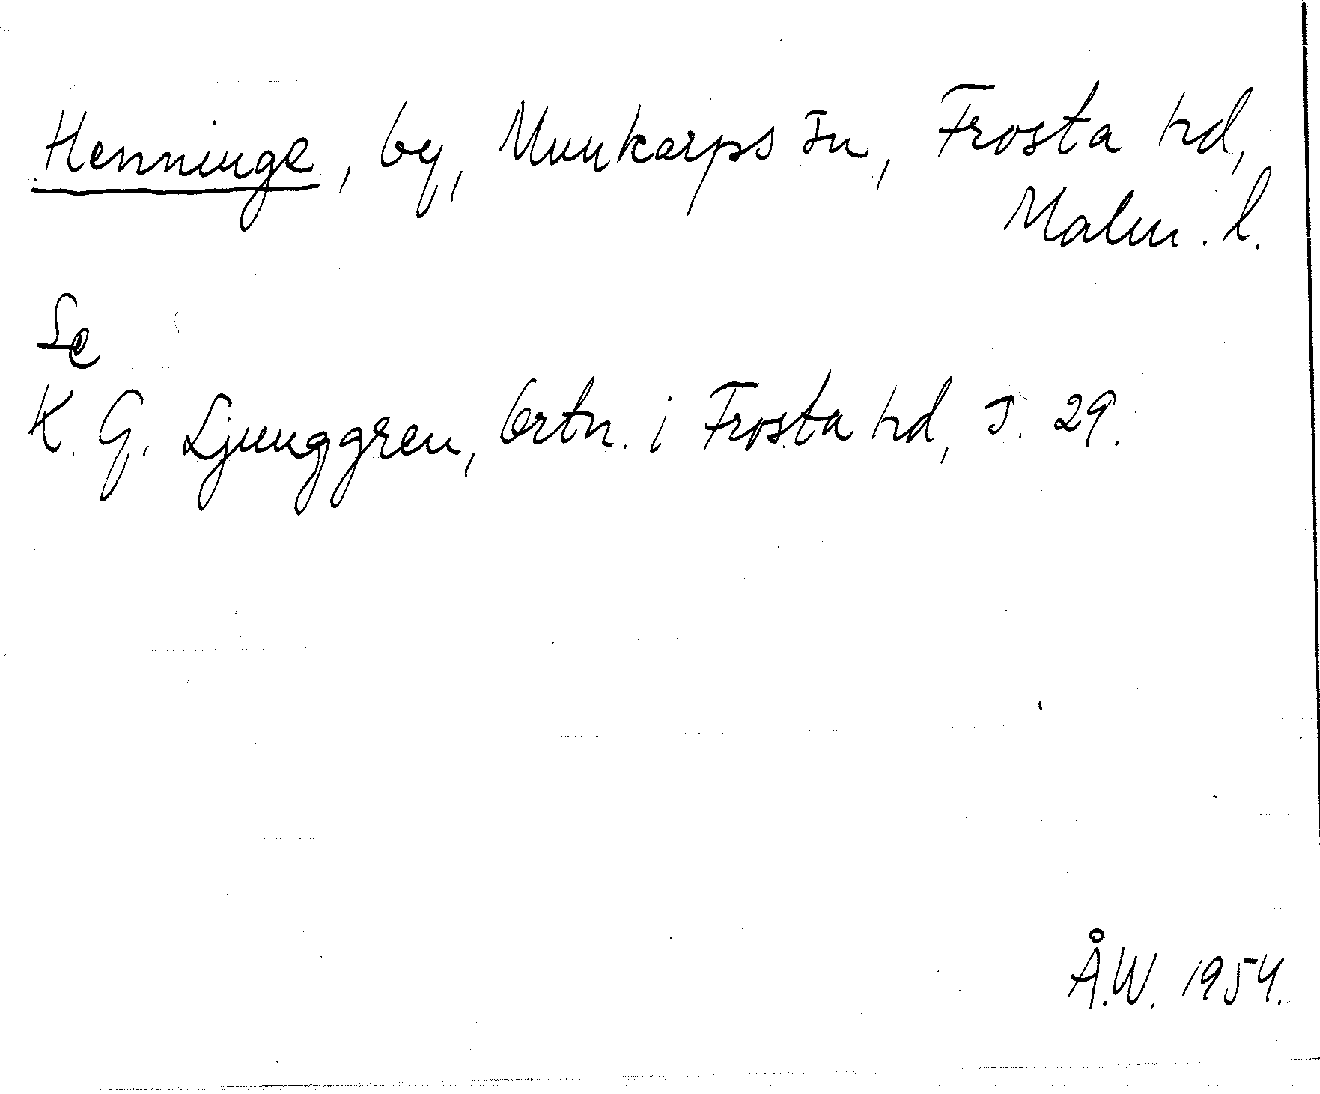 Henninge, by, Munkarps sn, Frosta hd,
Malm. l.
Se
K. G. Ljunggren, Ortn. i Frosta hd, s. 29.
Å.W. 1954.